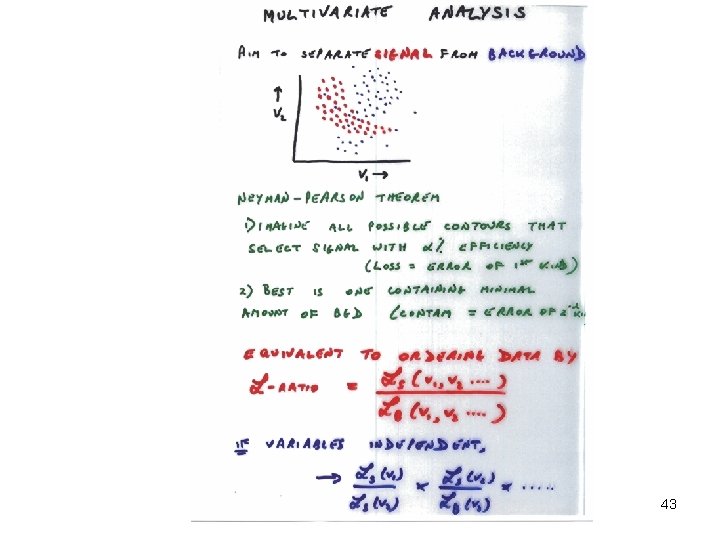 MULTIVARIATE ANALYSIS
AIM TO SEPARATE SIGNAL FROM BACKGROUND
↑
V₂
V₁ →
NEYMAN-PEARSON THEOREM
1) IMAGINE ALL POSSIBLE CONTOURS THAT
SELECT SIGNAL WITH α% EFFICIENCY
(LOSS = ERROR OF 1ST KIND)
2) BEST IS ONE CONTAINING MINIMAL
AMOUNT OF BGD (CONTAM = ERROR OF 2
EQUIVALENT TO ORDERING DATA BY
ℒ-RATIO = ℒS (V₁, V₂ ....) / ℒB (V₁, V₂ ....)
IF VARIABLES INDEPENDENT,
→ ℒS (V₁) / ℒS (V₁) × ℒS (V₂) / ℒB (V₂) × .....
43